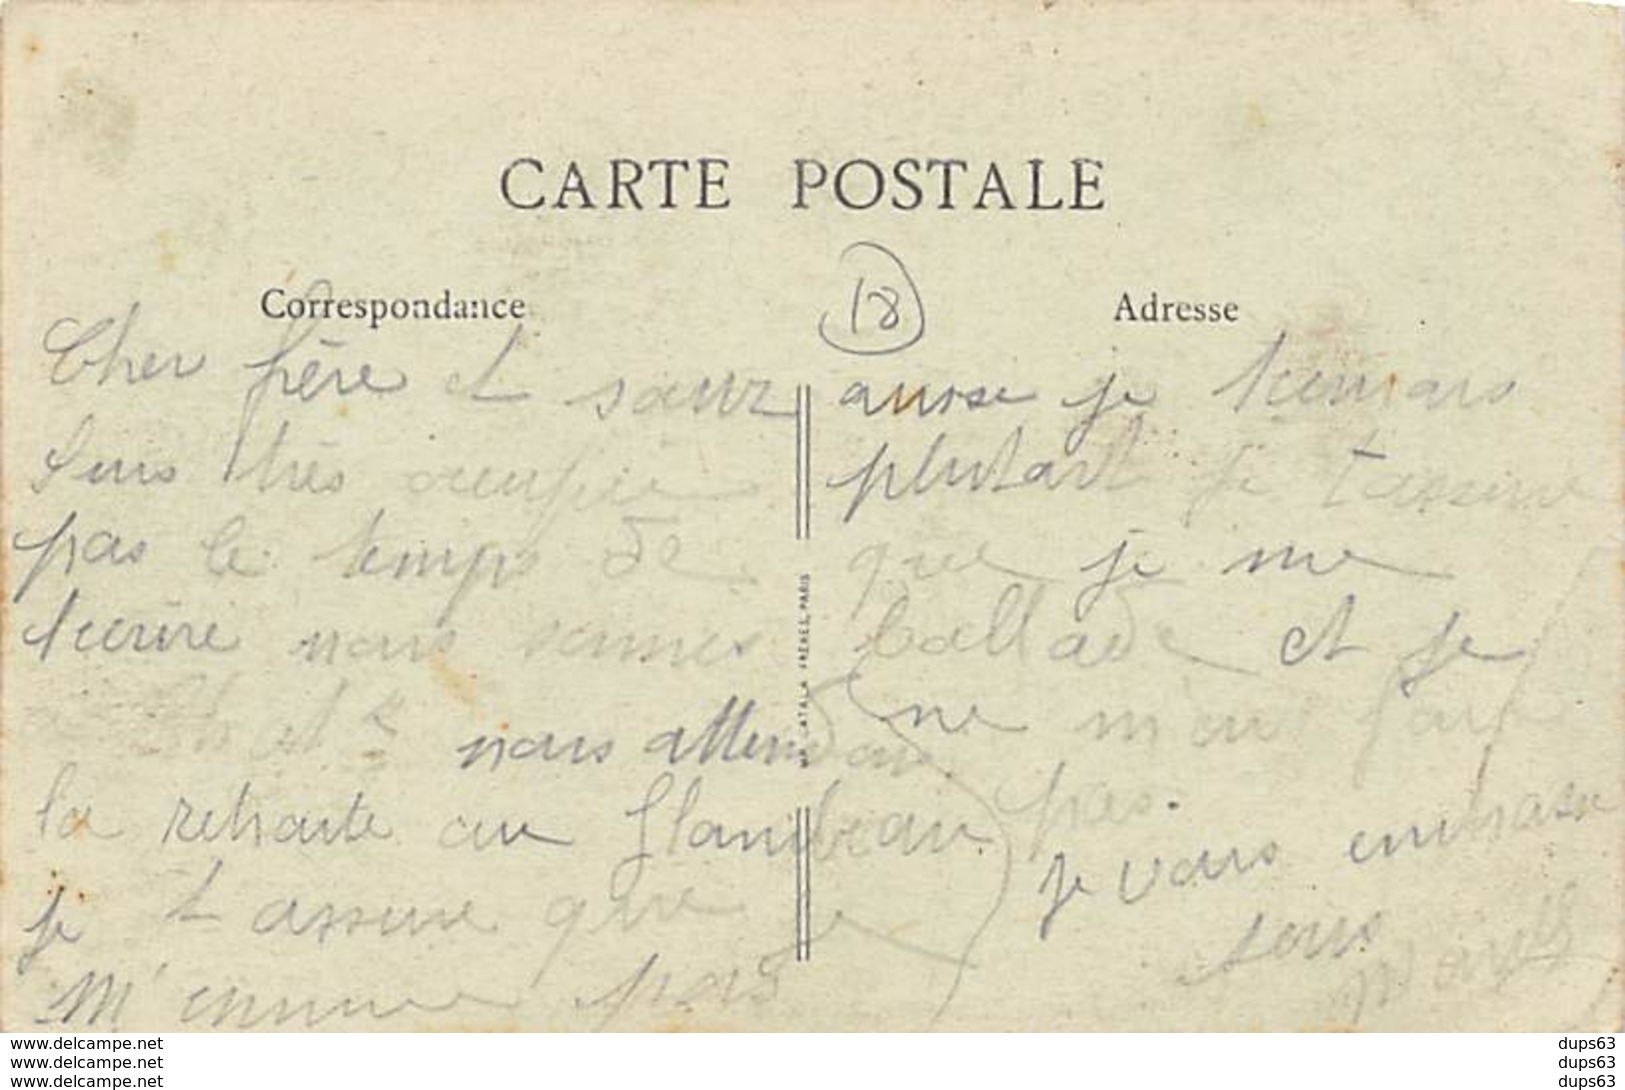 CARTE POSTALE
Correspondance
18
Adresse
Cher frère et sœur
suis très occupée
pas le temps de
tecrire nous sommes
nous attendons
la retraite au flambeau
je t assure que
m'ennuie pas
ausse je
plutart je t assure
que je me
ballade et je
ne m'en fais
pas.
je vous embrasse
tous
CATALA FRERES, PARIS
www.delcampe.net
www.delcampe.net
www.delcampe.net
dups63
dups63
dups63